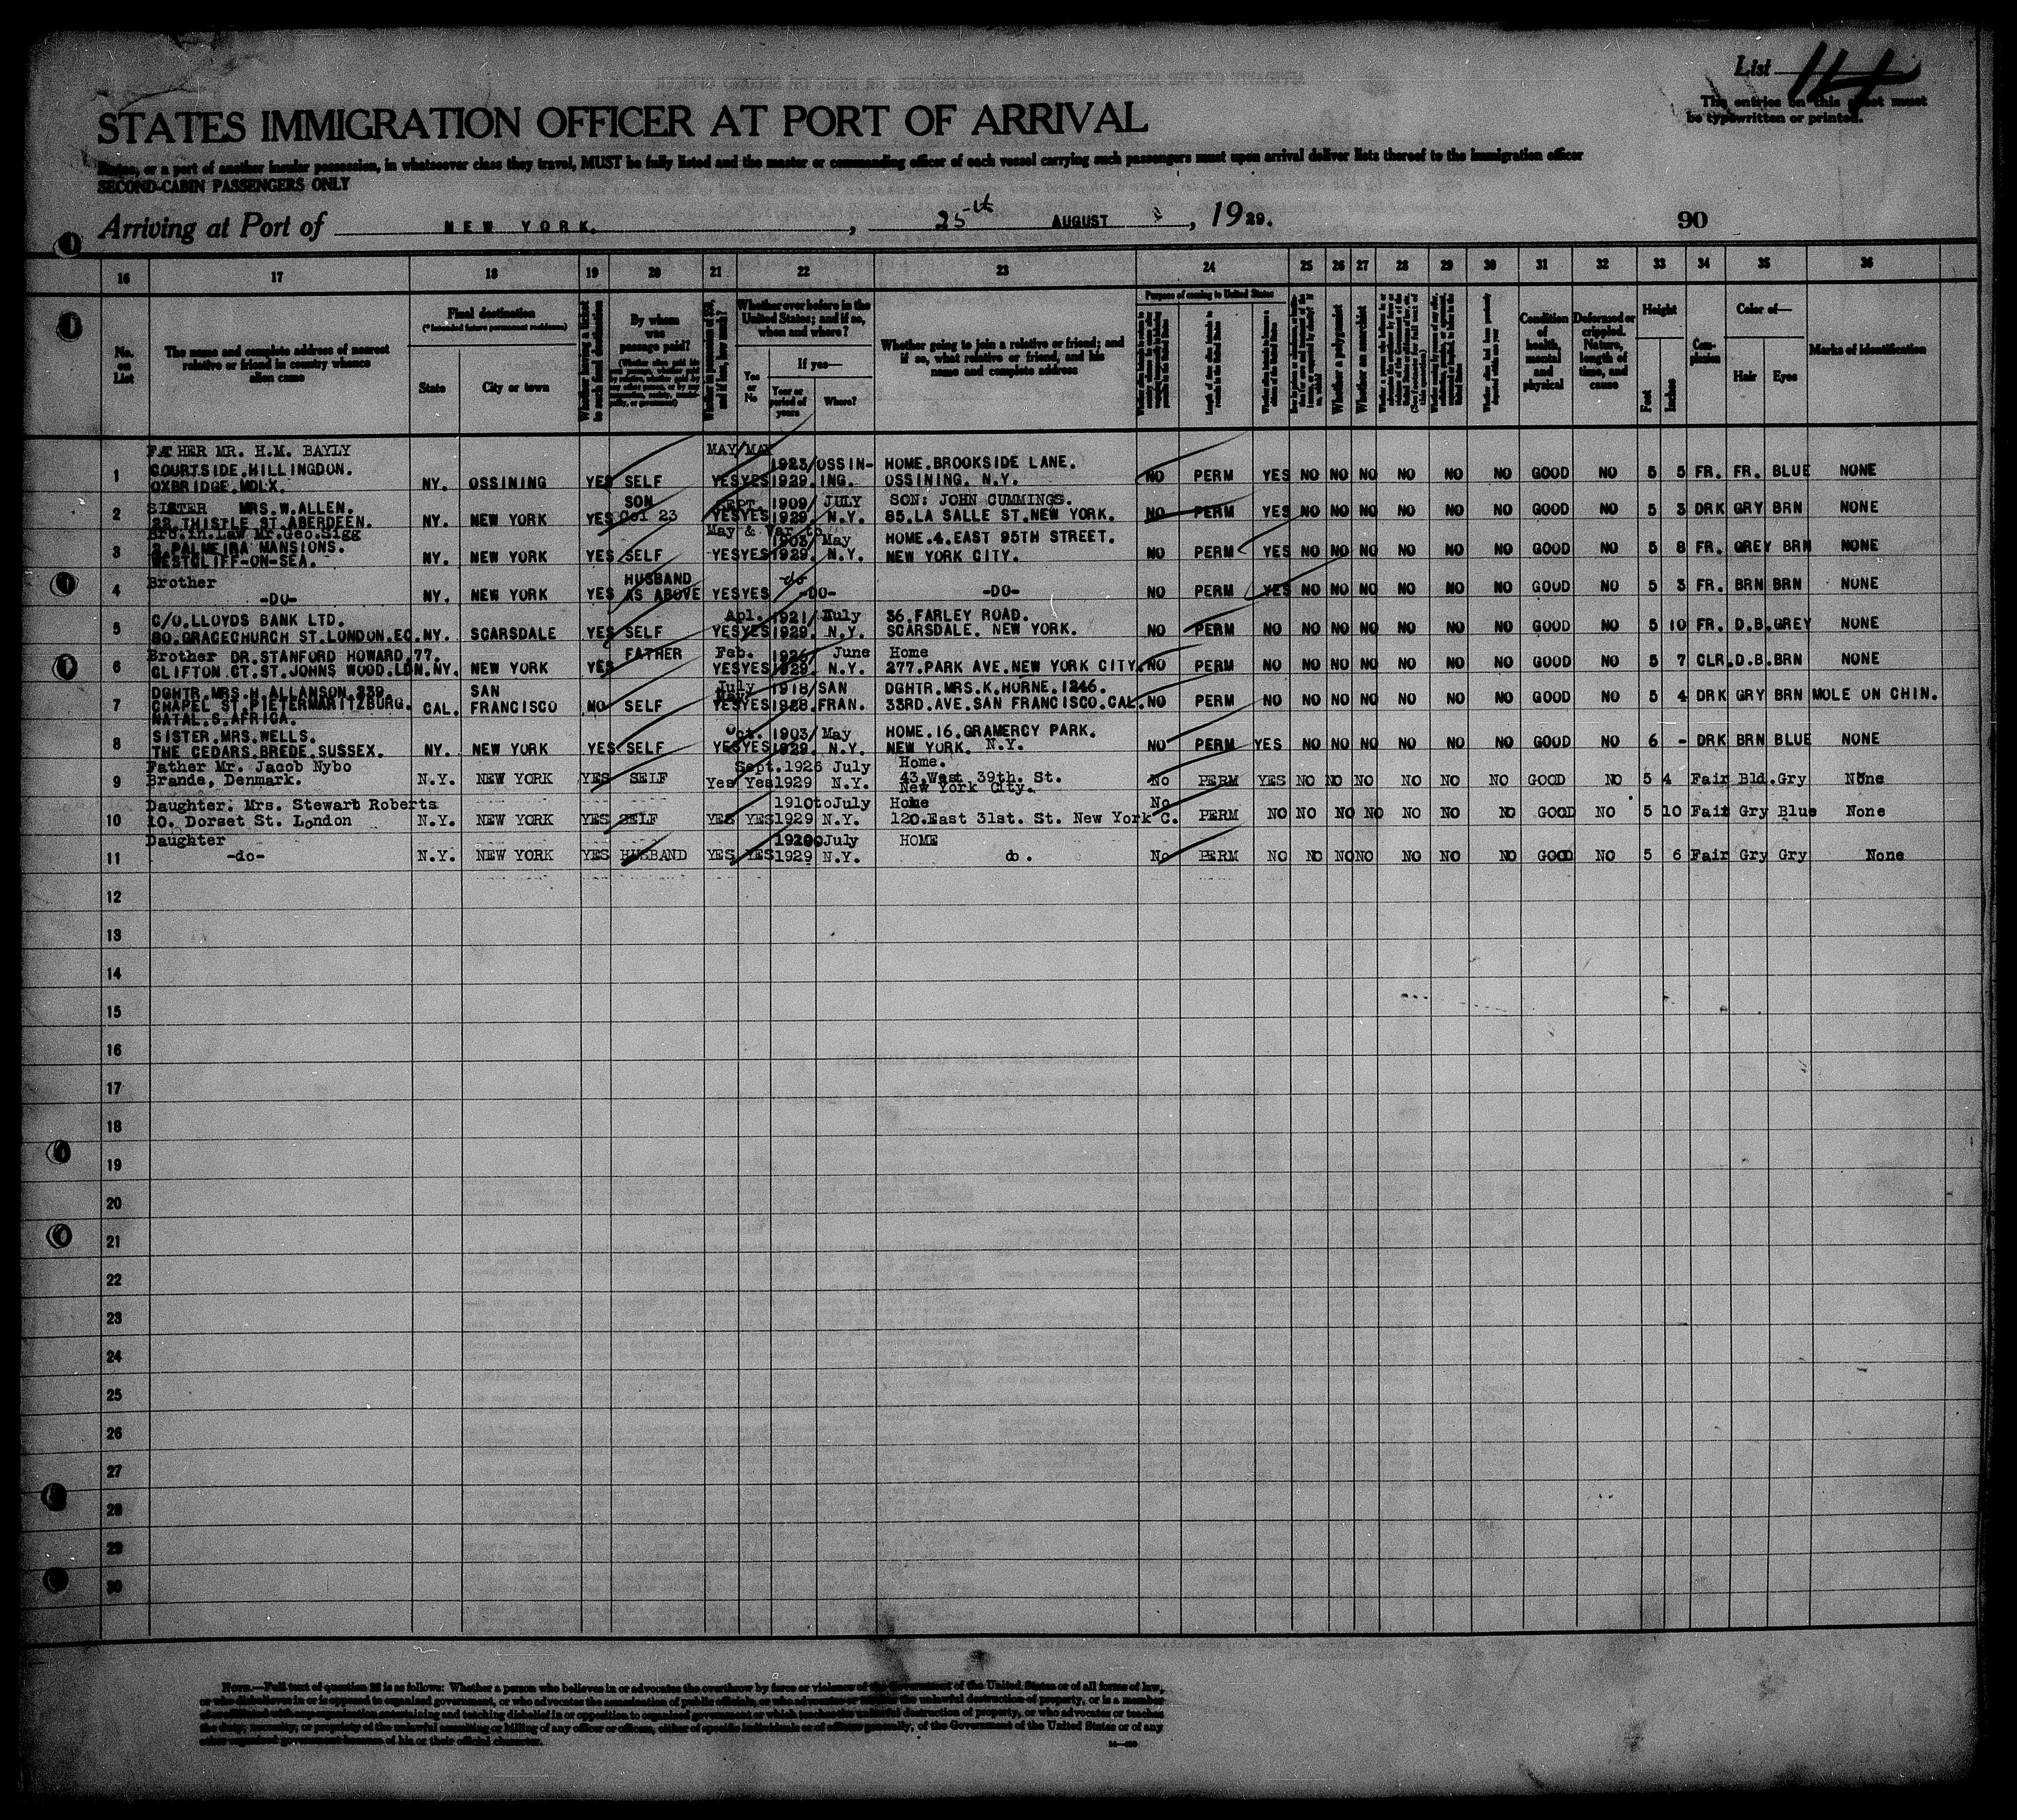 List 14
The entries on this sheet must
be typewritten or printed.
STATES IMMIGRATION OFFICER AT PORT OF ARRIVAL
or a part of another insular possession, in whatsoever class they travel, MUST be fully listed and the master or commanding officer of each vessel carrying such passengers must upon arrival deliver lists thereof to the immigration officer
SECOND-CABIN PASSENGERS ONLY
Arriving at Port of NEW YORK. , 25th AUGUST , 1929.
90
16 17 18 19 20 21 22 23 24 25 26 27 28 29 30 31 32 33 34 35 36
No. on List
The name and complete address of nearest relative or friend in country whence alien came
Final destination
(*Intended future permanent residence)
State
City or town
Whether having a ticket to such final destination
By whom was passage paid?
Whether in possession of $50, and if less, how much?
Whether ever before in the United States; and if so, when and where?
Yes or No
If yes—
Year or period of years
Where?
Whether going to join a relative or friend; and if so, what relative or friend, and his name and complete address
Purpose of coming to United States
Whether a polygamist
Whether an anarchist
Condition of health, mental and physical
Deformed or crippled. Nature, length of time, and cause
Height
Feet
Inches
Complexion
Color of—
Hair
Eyes
Marks of identification
FATHER MR. H.M. BAYLY MAY/MAY
1 COURTSIDE.HILLINGDON. 1923/OSSIN- HOME.BROOKSIDE LANE.
OXBRIDGE.MDLX. NY. OSSINING YES SELF YES YES 1929. ING. OSSINING. N.Y. NO PERM YES NO NO NO NO NO NO GOOD NO 5 5 FR. FR. BLUE NONE
2 SISTER MRS.W.ALLEN. SON SEPT. 1909/ JULY SON: JOHN CUMMINGS.
22.THISTLE ST.ABERDEEN. NY. NEW YORK YES Col 23 YES YES 1929. N.Y. 85.LA SALLE ST.NEW YORK. NO PERM YES NO NO NO NO NO NO GOOD NO 5 3 DRK GRY BRN NONE
Bro.in.Law Mr.Geo.Sigg May & 1903/ May
3 2.PALMEIRA MANSIONS. HOME.4.EAST 95TH STREET.
WESTCLIFF-ON-SEA. NY. NEW YORK YES SELF YES YES 1929. N.Y. NEW YORK CITY. NO PERM YES NO NO NO NO NO NO GOOD NO 5 8 FR. GREY BRN NONE
4 Brother HUSBAND do
-DO- NY. NEW YORK YES AS ABOVE YES YES -DO- -DO- NO PERM YES NO NO NO NO NO NO GOOD NO 5 3 FR. BRN BRN NONE
5 C/O.LLOYDS BANK LTD. Apl. 1921/ July 36.FARLEY ROAD.
80.GRACECHURCH ST.LONDON.EC. NY. SCARSDALE YES SELF YES YES 1929. N.Y. SCARSDALE. NEW YORK. NO PERM NO NO NO NO NO NO NO GOOD NO 5 10 FR. D.B. GREY NONE
6 Brother DR.STANFORD HOWARD,77. FATHER Feb. 1926/ June Home
CLIFTON CT.ST.JOHNS WOOD.LDN. NY. NEW YORK YES YES YES 1929. N.Y. 277.PARK AVE.NEW YORK CITY. NO PERM NO NO NO NO NO NO NO GOOD NO 5 7 CLR. D.B. BRN NONE
7 DGHTR.MRS.H.ALLANSON.339. SAN July 1918/SAN DGHTR.MRS.K.HORNE.1246.
CHAPEL ST.PIETERMARITZBURG. CAL. FRANCISCO NO SELF YES YES 1928. FRAN. 33RD.AVE.SAN FRANCISCO.CAL. NO PERM NO NO NO NO NO NO NO GOOD NO 5 4 DRK GRY BRN MOLE ON CHIN.
NATAL.S.AFRICA.
8 SISTER.MRS.WELLS. Oct. 1903/ May HOME.16.GRAMERCY PARK.
THE CEDARS.BREDE.SUSSEX. NY. NEW YORK YES SELF YES YES 1929. N.Y. NEW YORK. N.Y. NO PERM YES NO NO NO NO NO NO GOOD NO 6 - DRK BRN BLUE NONE
9 Father Mr. Jacob Nybo Sept.1926 July Home.
Brande, Denmark. N.Y. NEW YORK YES SELF Yes Yes 1929 N.Y. 43.West 39th. St. No PERM YES NO NO NO NO NO NO GOOD NO 5 4 Fair Bld. Gry None
New York City.
10 Daughter. Mrs. Stewart Roberts 1910 to July Home
10. Dorset St. London N.Y. NEW YORK YES SELF YES YES 1929 N.Y. 120.East 31st. St. New York C. No PERM NO NO NO NO NO NO NO GOOD NO 5 10 Fair Gry Blue None
11 Daughter July HOME
-do- N.Y. NEW YORK YES HUSBAND YES YES 1929 N.Y. do. No PERM NO NO NO NO NO NO NO GOOD NO 5 6 Fair Gry Gry None
12
13
14
15
16
17
18
19
20
21
22
23
24
25
26
27
28
29
30
NOTE.—Full text of question 28 is as follows: Whether a person who believes in or advocates the overthrow by force or violence of the Government of the United States or of all forms of law,
or who disbelieves in or is opposed to organized government, or who advocates the assassination of public officials, or who advocates or teaches the unlawful destruction of property, or is a member
of or affiliated with any organization entertaining and teaching disbelief in or opposition to organized government or which teaches the unlawful destruction of property, or who advocates or teaches
the duty, necessity, or propriety of the unlawful assaulting or killing of any officer or officers, either of specific individuals or of officers generally, of the Government of the United States or of any
other organized government because of his or their official character.